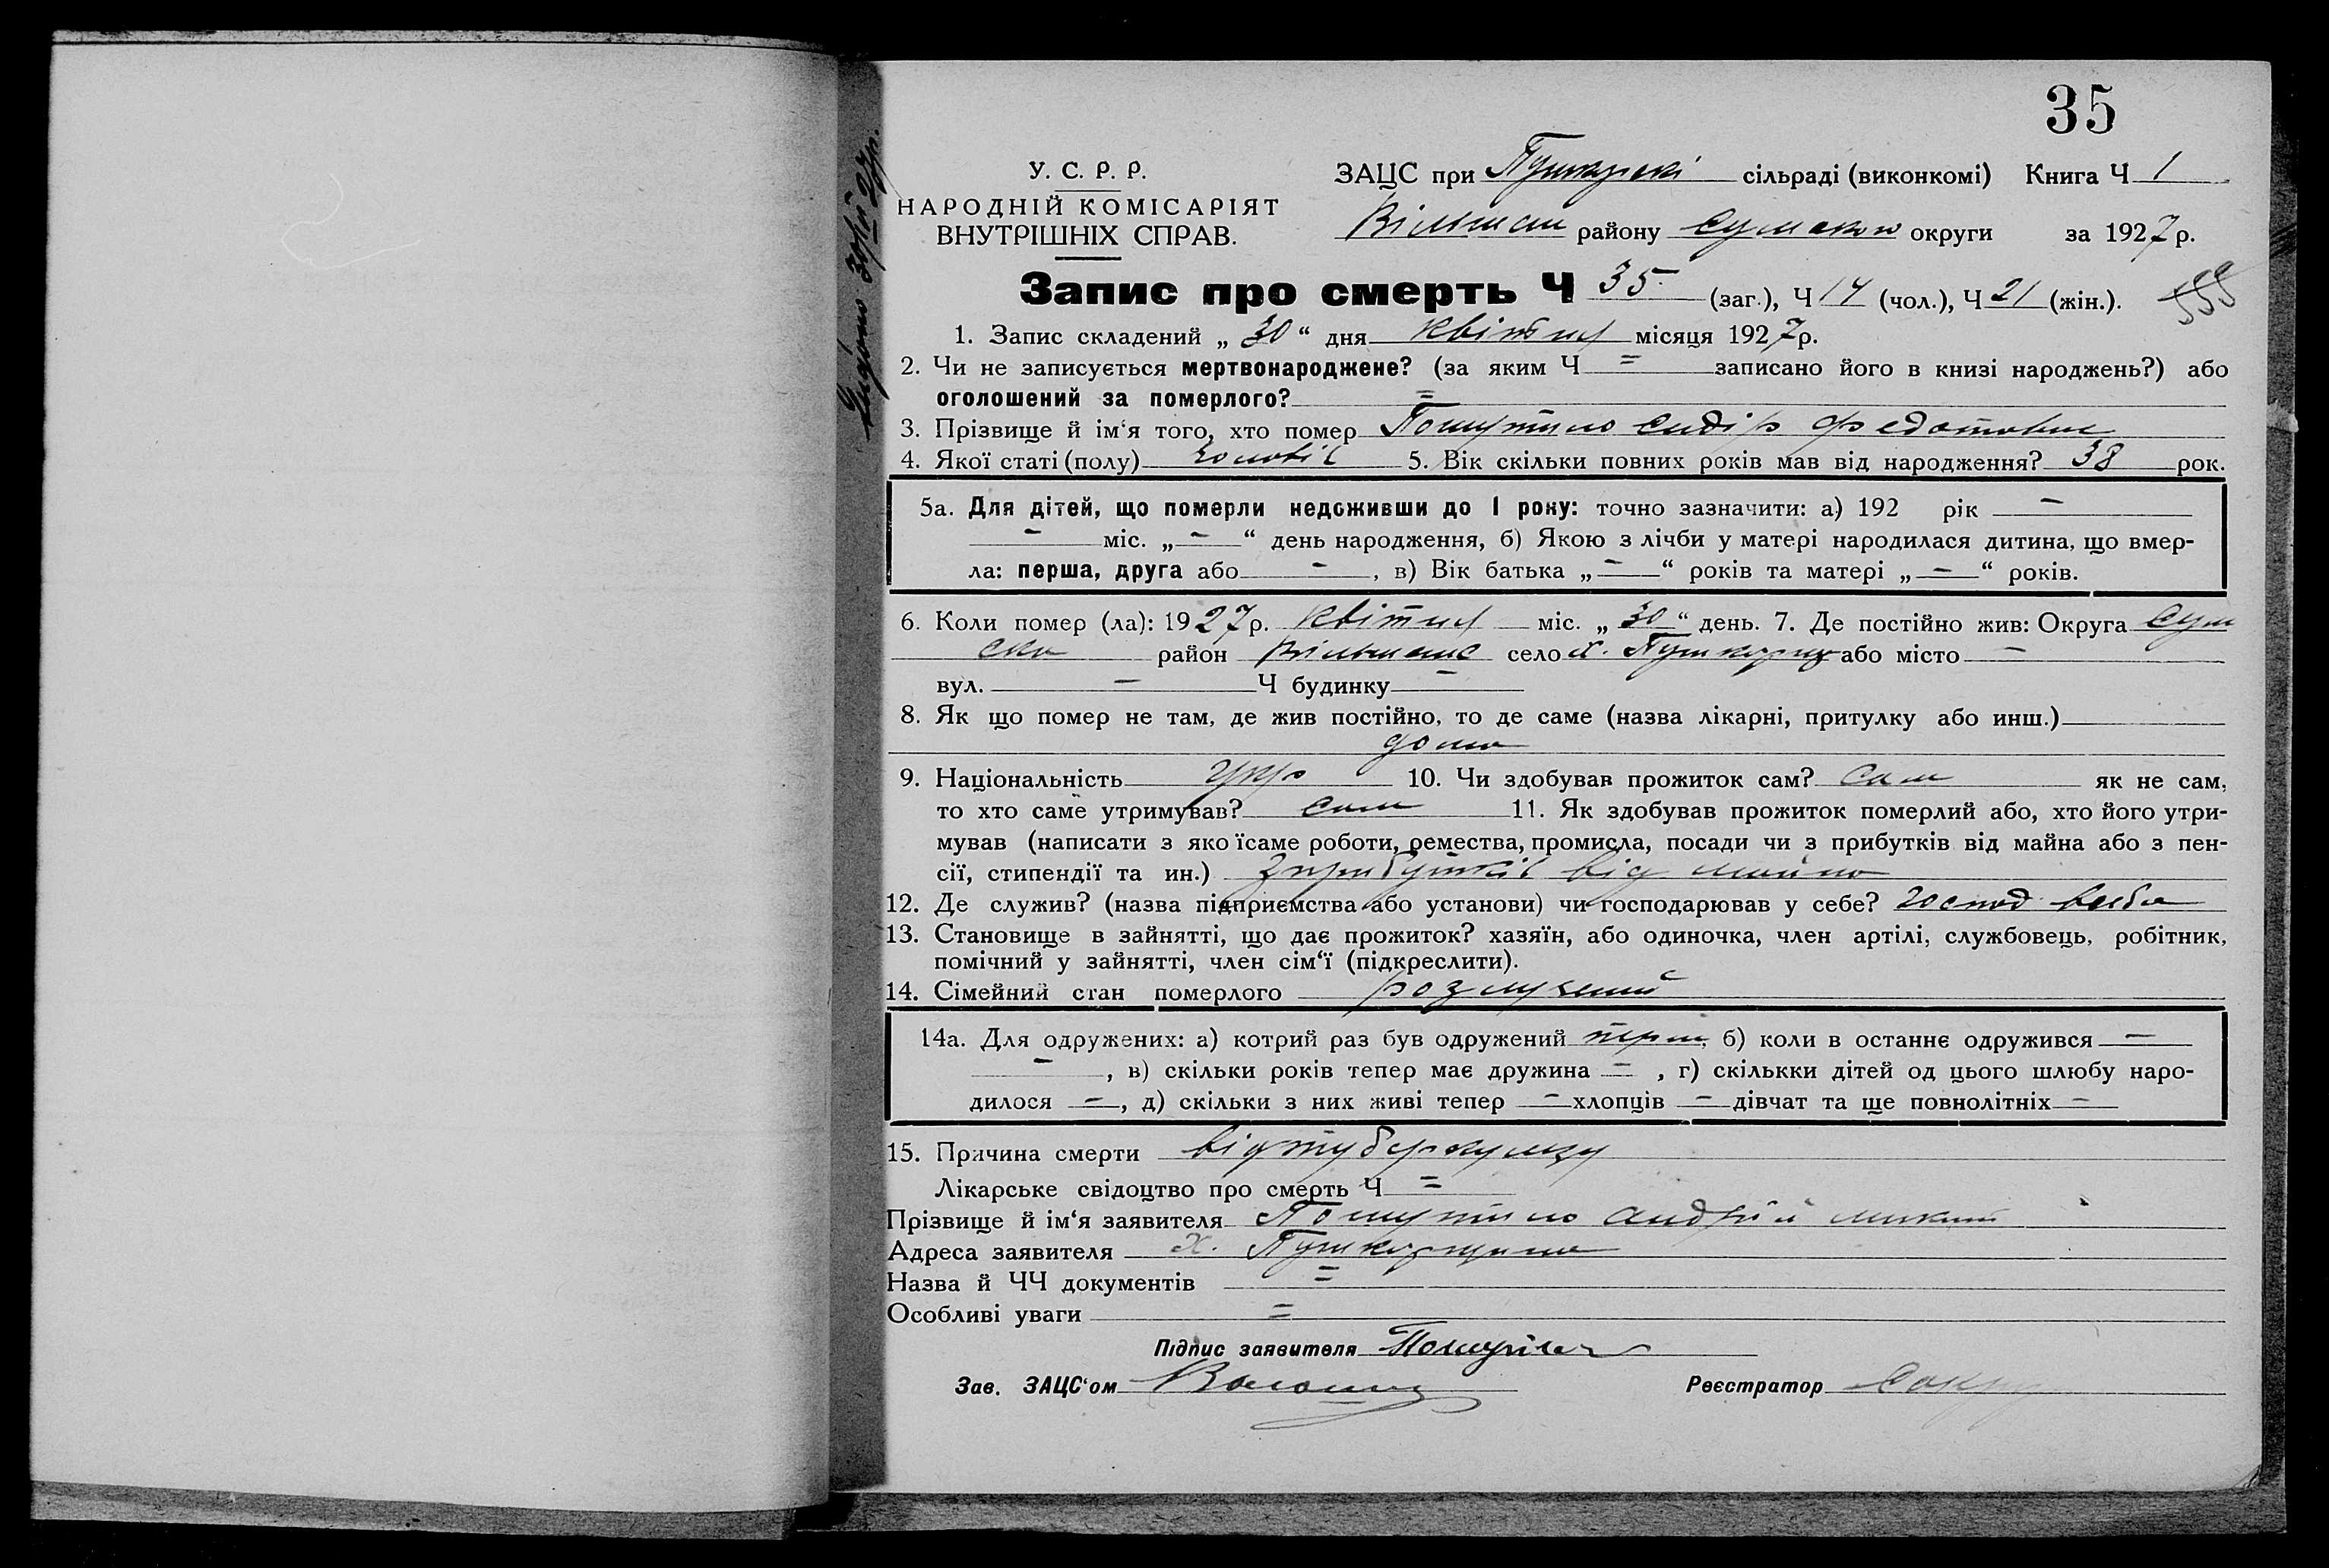 35
У. С. Р. Р.
НАРОДНІЙ КОМІСАРІЯТ
ВНУТРІШНІХ СПРАВ.
ЗАЦС при Пушкарскі сільраді (виконкомі) Книга Ч 1
Вільшан району Сумскои округи за 1927 р.
Запис про смерть Ч 35 (заг.), Ч 14 (чол.), Ч 21 (жін.).
1. Запис складений „ 30 “ дня квітня місяця 1927 р.
2. Чи не записується мертвонароджене? (за яким Ч = записано його в книзі народжень?) або
оголошений за померлого? =
3. Прізвище й ім‘я того, хто помер Сидір Федотович
4. Якої статі (полу) чоловіч 5. Вік скільки повних років мав від народження? 38 рок.
5а. Для дітей, що померли недоживши до 1 року: точно зазначити: а) 192 рік –
– міс. „ – “ день народження, б) Якою з лічби у матері народилася дитина, що вмер-
ла: перша, друга або – , в) Вік батька „ – “ років та матері „ – “ років.
6. Коли помер (ла): 1927 р. квітня міс. „ 30 “ день. 7. Де постійно жив: Округа Сум
ска район Вільшанс село х. Пушкарщ або місто –
вул. – Ч будинку –
8. Як що помер не там, де жив постійно, то де саме (назва лікарні, притулку або инш.)
дома
9. Національність укр 10. Чи здобував прожиток сам? сам як не сам,
то хто саме утримував? сам 11. Як здобував прожиток померлий або, хто його утри-
мував (написати з яко їсаме роботи, ремества, промисла, посади чи з прибутків від майна або з пен-
сії, стипендії та ин.) з прибутків від майна
12. Де служив? (назва підприємства або установи) чи господарював у себе? господ. всебе
13. Становище в зайнятті, що дає прожиток? хазяїн, або одиночка, член артілі, службовець, робітник,
помічний у зайнятті, член сім‘ї (підкреслити).
14. Сімейний стан померлого розлучений
14а. Для одружених: а) котрий раз був одружений перш, б) коли в останнє одружився –
– , в) скільки років тепер має дружина = , г) скількки дітей од цього шлюбу наро-
дилося – , д) скільки з них живі тепер – хлопців – дівчат та ще повнолітніх –
15. Причина смерти від туберкульозу
Лікарське свідоцтво про смерть Ч =
Прізвище й ім‘я заявителя Андрій
Адреса заявителя х. Пушкарщина
Назва й ЧЧ документів =
Особливі уваги =
Підпис заявителя
Зав. ЗАЦС‘ом
Реєстратор